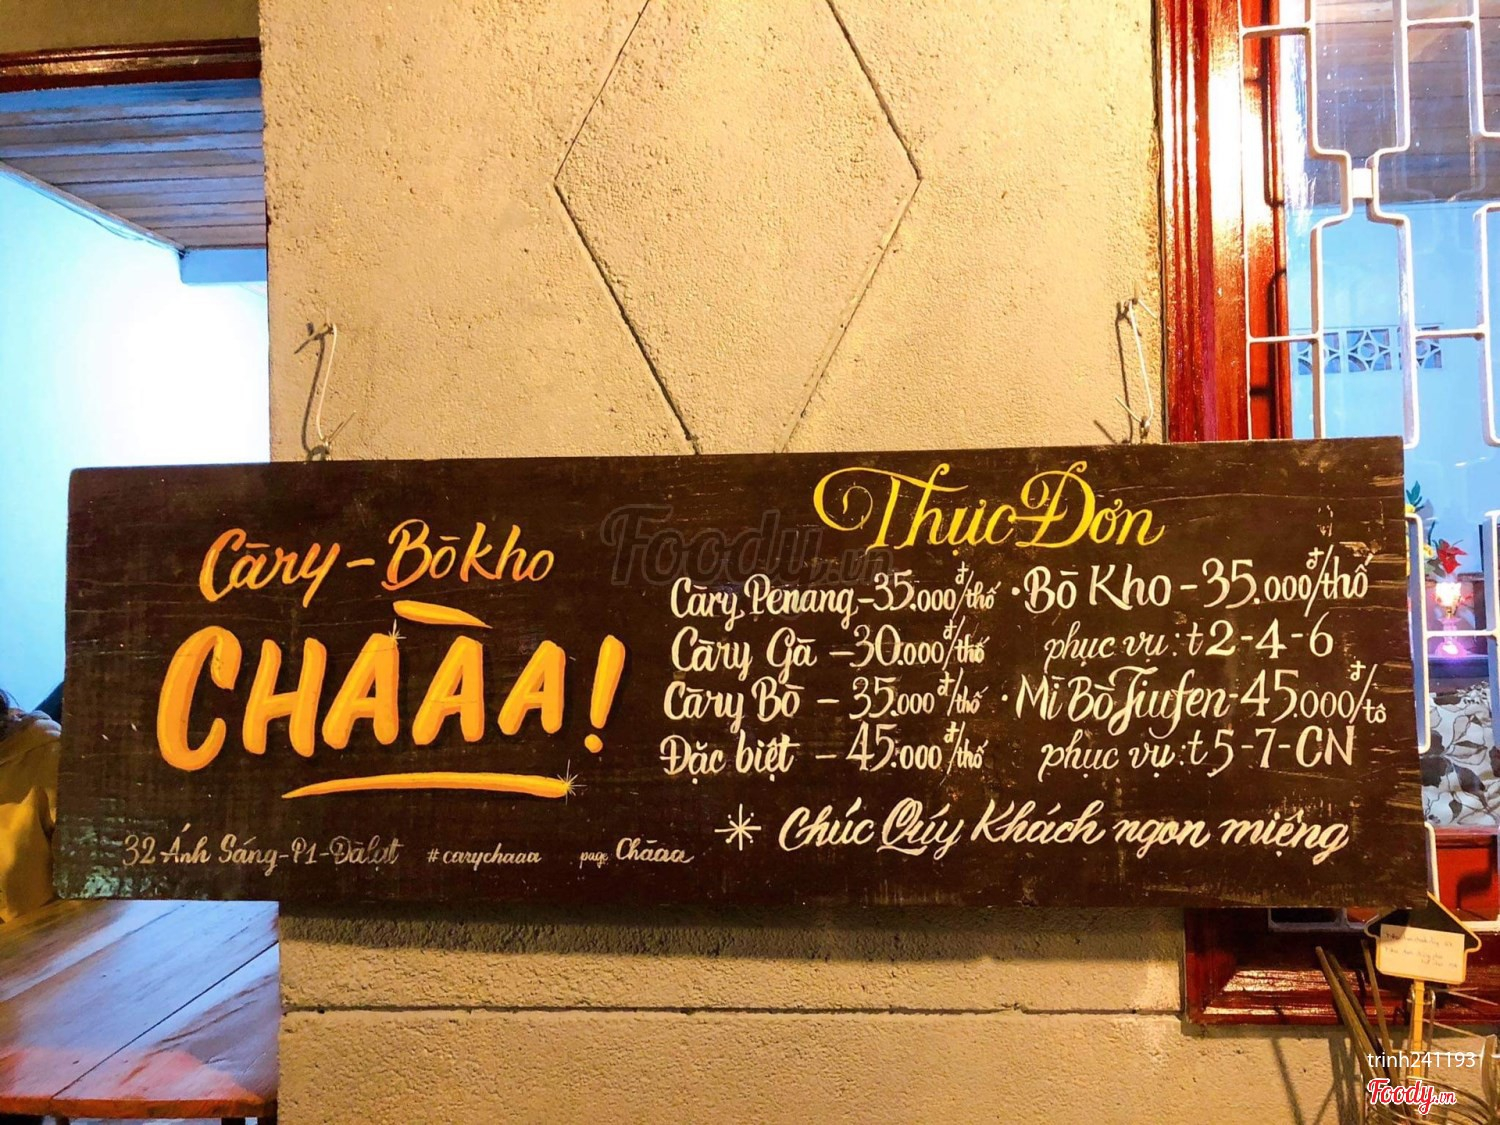 Cāry - Bò kho
CHÀAA!
32 Ánh Sáng - P1 - Đàlạt #carychaaa page Chàaa
Thực Đơn
Càry Penang - 35.000đ/thố
Càry Gà - 30.000đ/thố
Càry Bò - 35.000đ/thố
Đặc biệt - 45.000đ/thố
· Bò Kho - 35.000đ/thố
phục vụ: t2-4-6
· Mì Bò Jiufen - 45.000đ/tô
phục vụ: t5-7-CN
Chúc Quý Khách ngon miệng
Foody.vn
trinh241193
Foody.vn